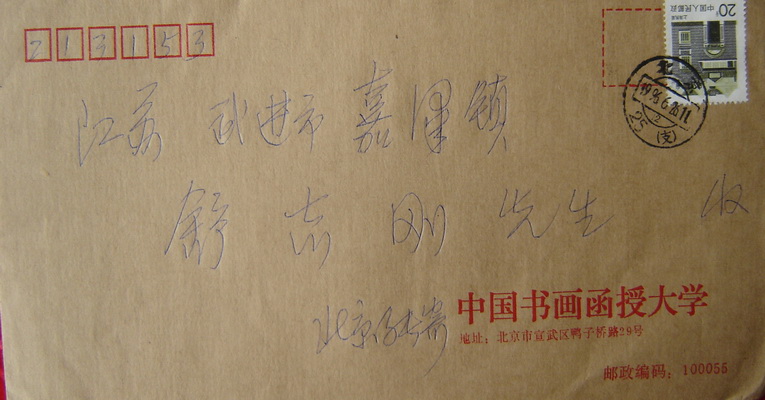 213153
20分 中国人民邮政
上海民居
北京
1996.6.26.11
25
(支)
江苏 武进市 嘉泽镇
舒志刚 先生 收
中国书画函授大学
地址：北京市宣武区鸭子桥路29号
邮政编码：100055